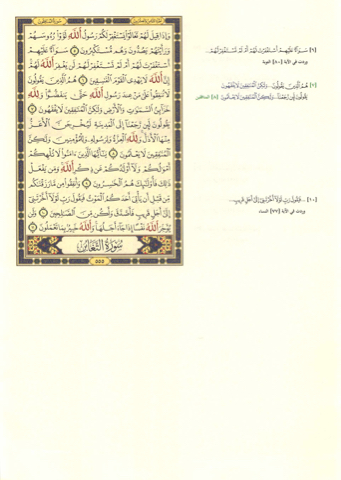 وَإِذَا قِيلَ لَهُمْ تَعَالَوْا يَسْتَغْفِرْ لَكُمْ رَسُولُ ٱللَّهِ لَوَّوْا۟ رُءُوسَهُمْ
وَرَأَيْتَهُمْ يَصُدُّونَ وَهُم مُّسْتَكْبِرُونَ ٥ سَوَآءٌ عَلَيْهِمْ
أَسْتَغْفَرْتَ لَهُمْ أَمْ لَمْ تَسْتَغْفِرْ لَهُمْ لَن يَغْفِرَ ٱللَّهُ لَهُمْ
إِنَّ ٱللَّهَ لَا يَهْدِى ٱلْقَوْمَ ٱلْفَٰسِقِينَ ٦ هُمُ ٱلَّذِينَ يَقُولُونَ
لَا تُنفِقُوا۟ عَلَىٰ مَنْ عِندَ رَسُولِ ٱللَّهِ حَتَّىٰ يَنفَضُّوا۟ وَلِلَّهِ
خَزَآئِنُ ٱلسَّمَٰوَٰتِ وَٱلْأَرْضِ وَلَٰكِنَّ ٱلْمُنَٰفِقِينَ لَا يَفْقَهُونَ ٧
يَقُولُونَ لَئِن رَّجَعْنَآ إِلَى ٱلْمَدِينَةِ لَيُخْرِجَنَّ ٱلْأَعَزُّ
مِنْهَا ٱلْأَذَلَّ وَلِلَّهِ ٱلْعِزَّةُ وَلِرَسُولِهِۦ وَلِلْمُؤْمِنِينَ وَلَٰكِنَّ
ٱلْمُنَٰفِقِينَ لَا يَعْلَمُونَ ٨ يَٰٓأَيُّهَا ٱلَّذِينَ ءَامَنُوا۟ لَا تُلْهِكُمْ
أَمْوَٰلُكُمْ وَلَآ أَوْلَٰدُكُمْ عَن ذِكْرِ ٱللَّهِ وَمَن يَفْعَلْ
ذَٰلِكَ فَأُو۟لَٰٓئِكَ هُمُ ٱلْخَٰسِرُونَ ٩ وَأَنفِقُوا۟ مِن مَّا رَزَقْنَٰكُم
مِّن قَبْلِ أَن يَأْتِىَ أَحَدَكُمُ ٱلْمَوْتُ فَيَقُولَ رَبِّ لَوْلَآ أَخَّرْتَنِىٓ
إِلَىٰٓ أَجَلٍ قَرِيبٍ فَأَصَّدَّقَ وَأَكُن مِّنَ ٱلصَّٰلِحِينَ ١٠ وَلَن
يُؤَخِّرَ ٱللَّهُ نَفْسًا إِذَا جَآءَ أَجَلُهَا وَٱللَّهُ خَبِيرٌۢ بِمَا تَعْمَلُونَ ١١
سُورَةُ ٱلتَّغَابُنِ
٥٥٥
[٦] سَوَآءٌ عَلَيْهِمْ أَسْتَغْفَرْتَ لَهُمْ أَمْ لَمْ تَسْتَغْفِرْ لَهُمْ...
وردت في الآية [٨٠] التوبة
[٧] هُمُ ٱلَّذِينَ يَقُولُونَ ... وَلَٰكِنَّ ٱلْمُنَٰفِقِينَ لَا يَفْقَهُونَ
يَقُولُونَ لَئِن رَّجَعْنَآ ... وَلَٰكِنَّ ٱلْمُنَٰفِقِينَ لَا يَعْلَمُونَ [٨] المنافقون
[١٠] ... فَيَقُولَ رَبِّ لَوْلَآ أَخَّرْتَنِىٓ إِلَىٰٓ أَجَلٍ قَرِيبٍ...
وردت في الآية [٧٧] النساء